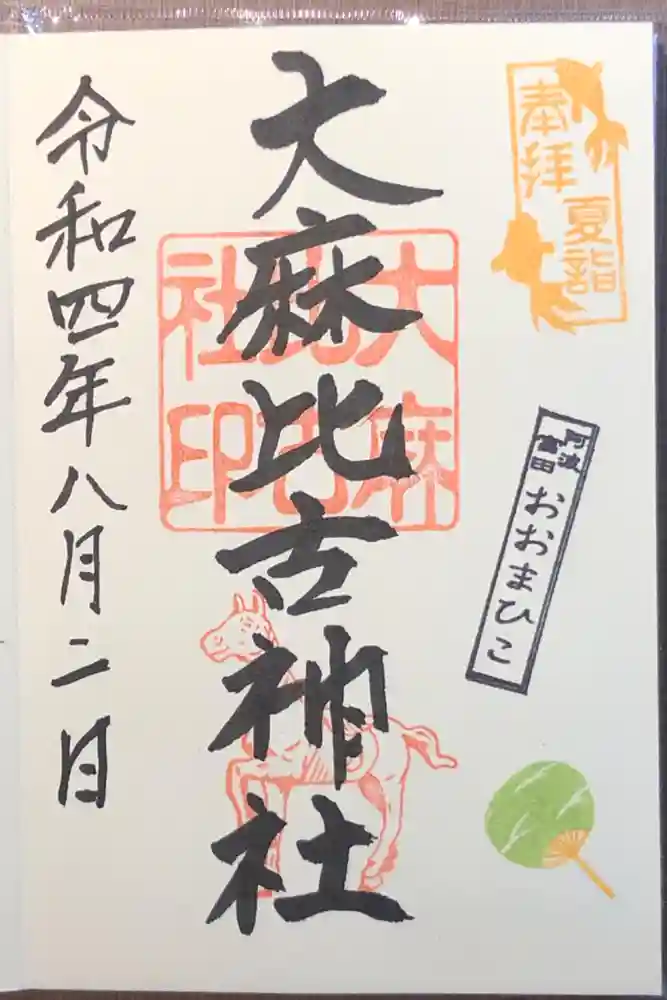 奉拝
夏詣
阿波
富田
おおまひこ
大麻比古神社
大麻
比古
社印
令和四年八月二日